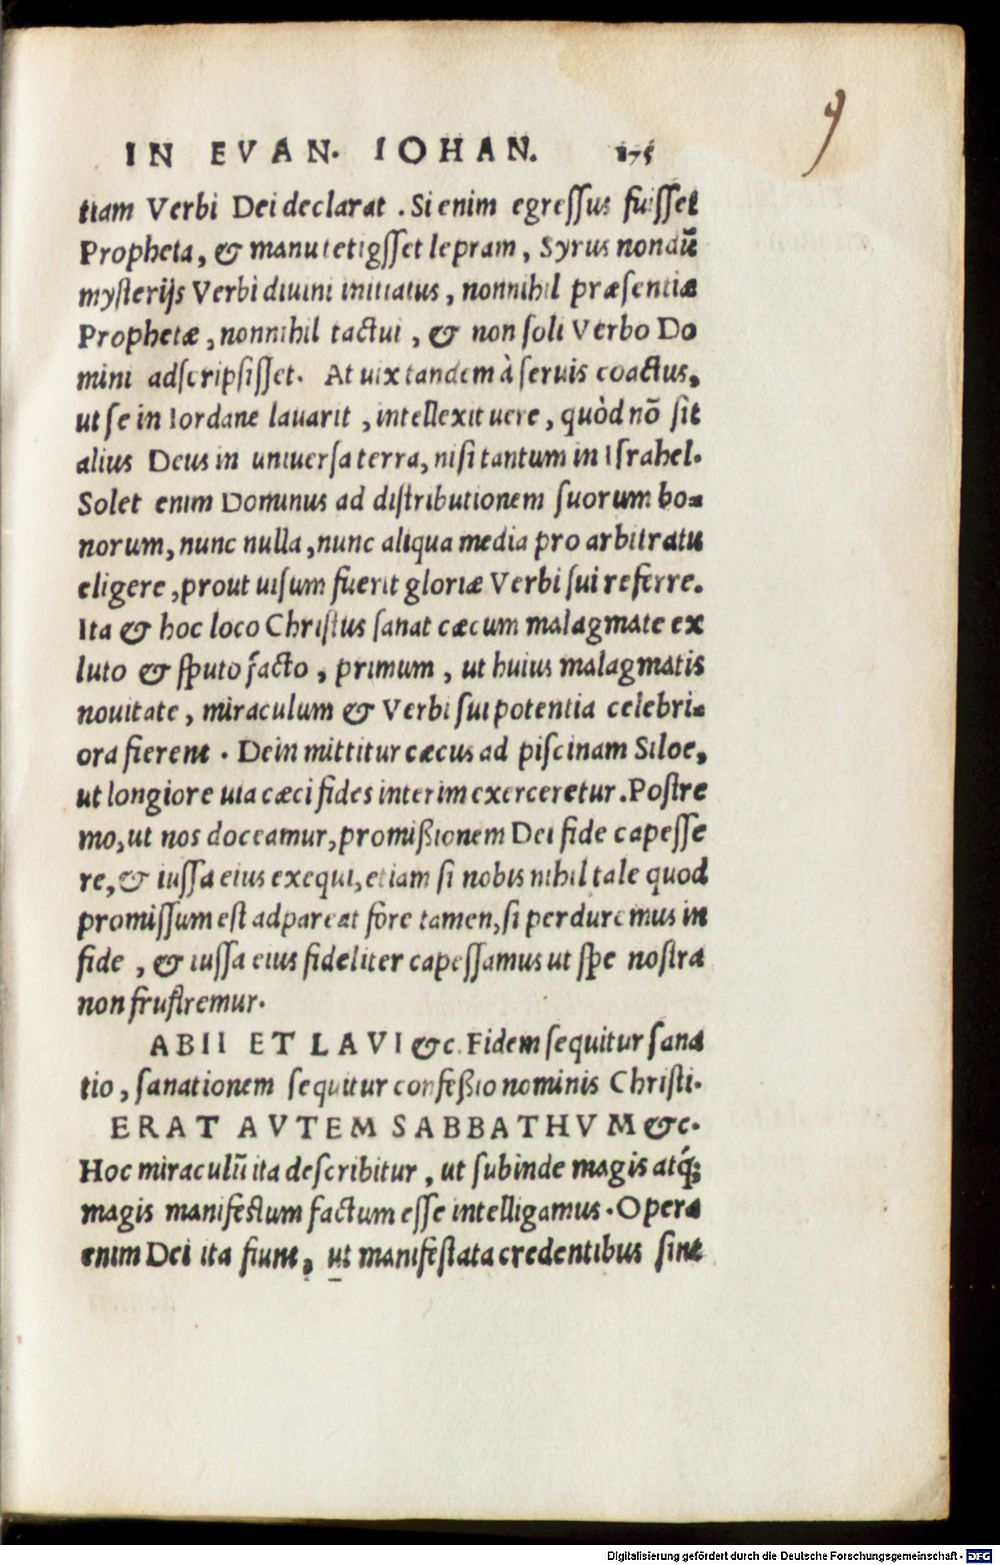 9
IN EVAN. IOHAN. 175
tiam Verbi Dei declarat . Si enim egressus fuisset
Propheta, & manu tetigsset lepram, Syrus nondū
mysterijs Verbi diuini initiatus, nonnihil præsentiæ
Prophetæ, nonnihil tactui, & non soli Verbo Do
mini adscripsisset. At uix tandem à seruis coactus,
ut se in Iordane lauarit, intellexit uere, quòd nō sit
alius Deus in uniuersa terra, nisi tantum in Israhel.
Solet enim Dominus ad distributionem suorum bo-
norum, nunc nulla, nunc aliqua media pro arbitratu
eligere, prout uisum fuerit gloriæ Verbi sui referre.
Ita & hoc loco Christus sanat cæcum malagmate ex
luto & sputo facto, primum, ut huius malagmatis
nouitate, miraculum & Verbi sui potentia celebri-
ora fierent. Dein mittitur cæcus ad piscinam Siloe,
ut longiore uia cæci fides interim exerceretur. Postre
mo, ut nos doceamur, promißionem Dei fide capesse
re, & iussa eius exequi, etiam si nobis nihil tale quod
promissum est adpareat fore tamen, si perduremus in
fide, & iussa eius fideliter capessamus ut spe nostra
non frustremur.
ABII ET LAVI &c. Fidem sequitur sana
tio, sanationem sequitur confeßio nominis Christi.
ERAT AVTEM SABBATHVM &c.
Hoc miraculū ita describitur, ut subinde magis atq́;
magis manifestum factum esse intelligamus. Opera
enim Dei ita fiunt, ut manifestata credentibus sint
Digitalisierung gefördert durch die Deutsche Forschungsgemeinschaft - DFG